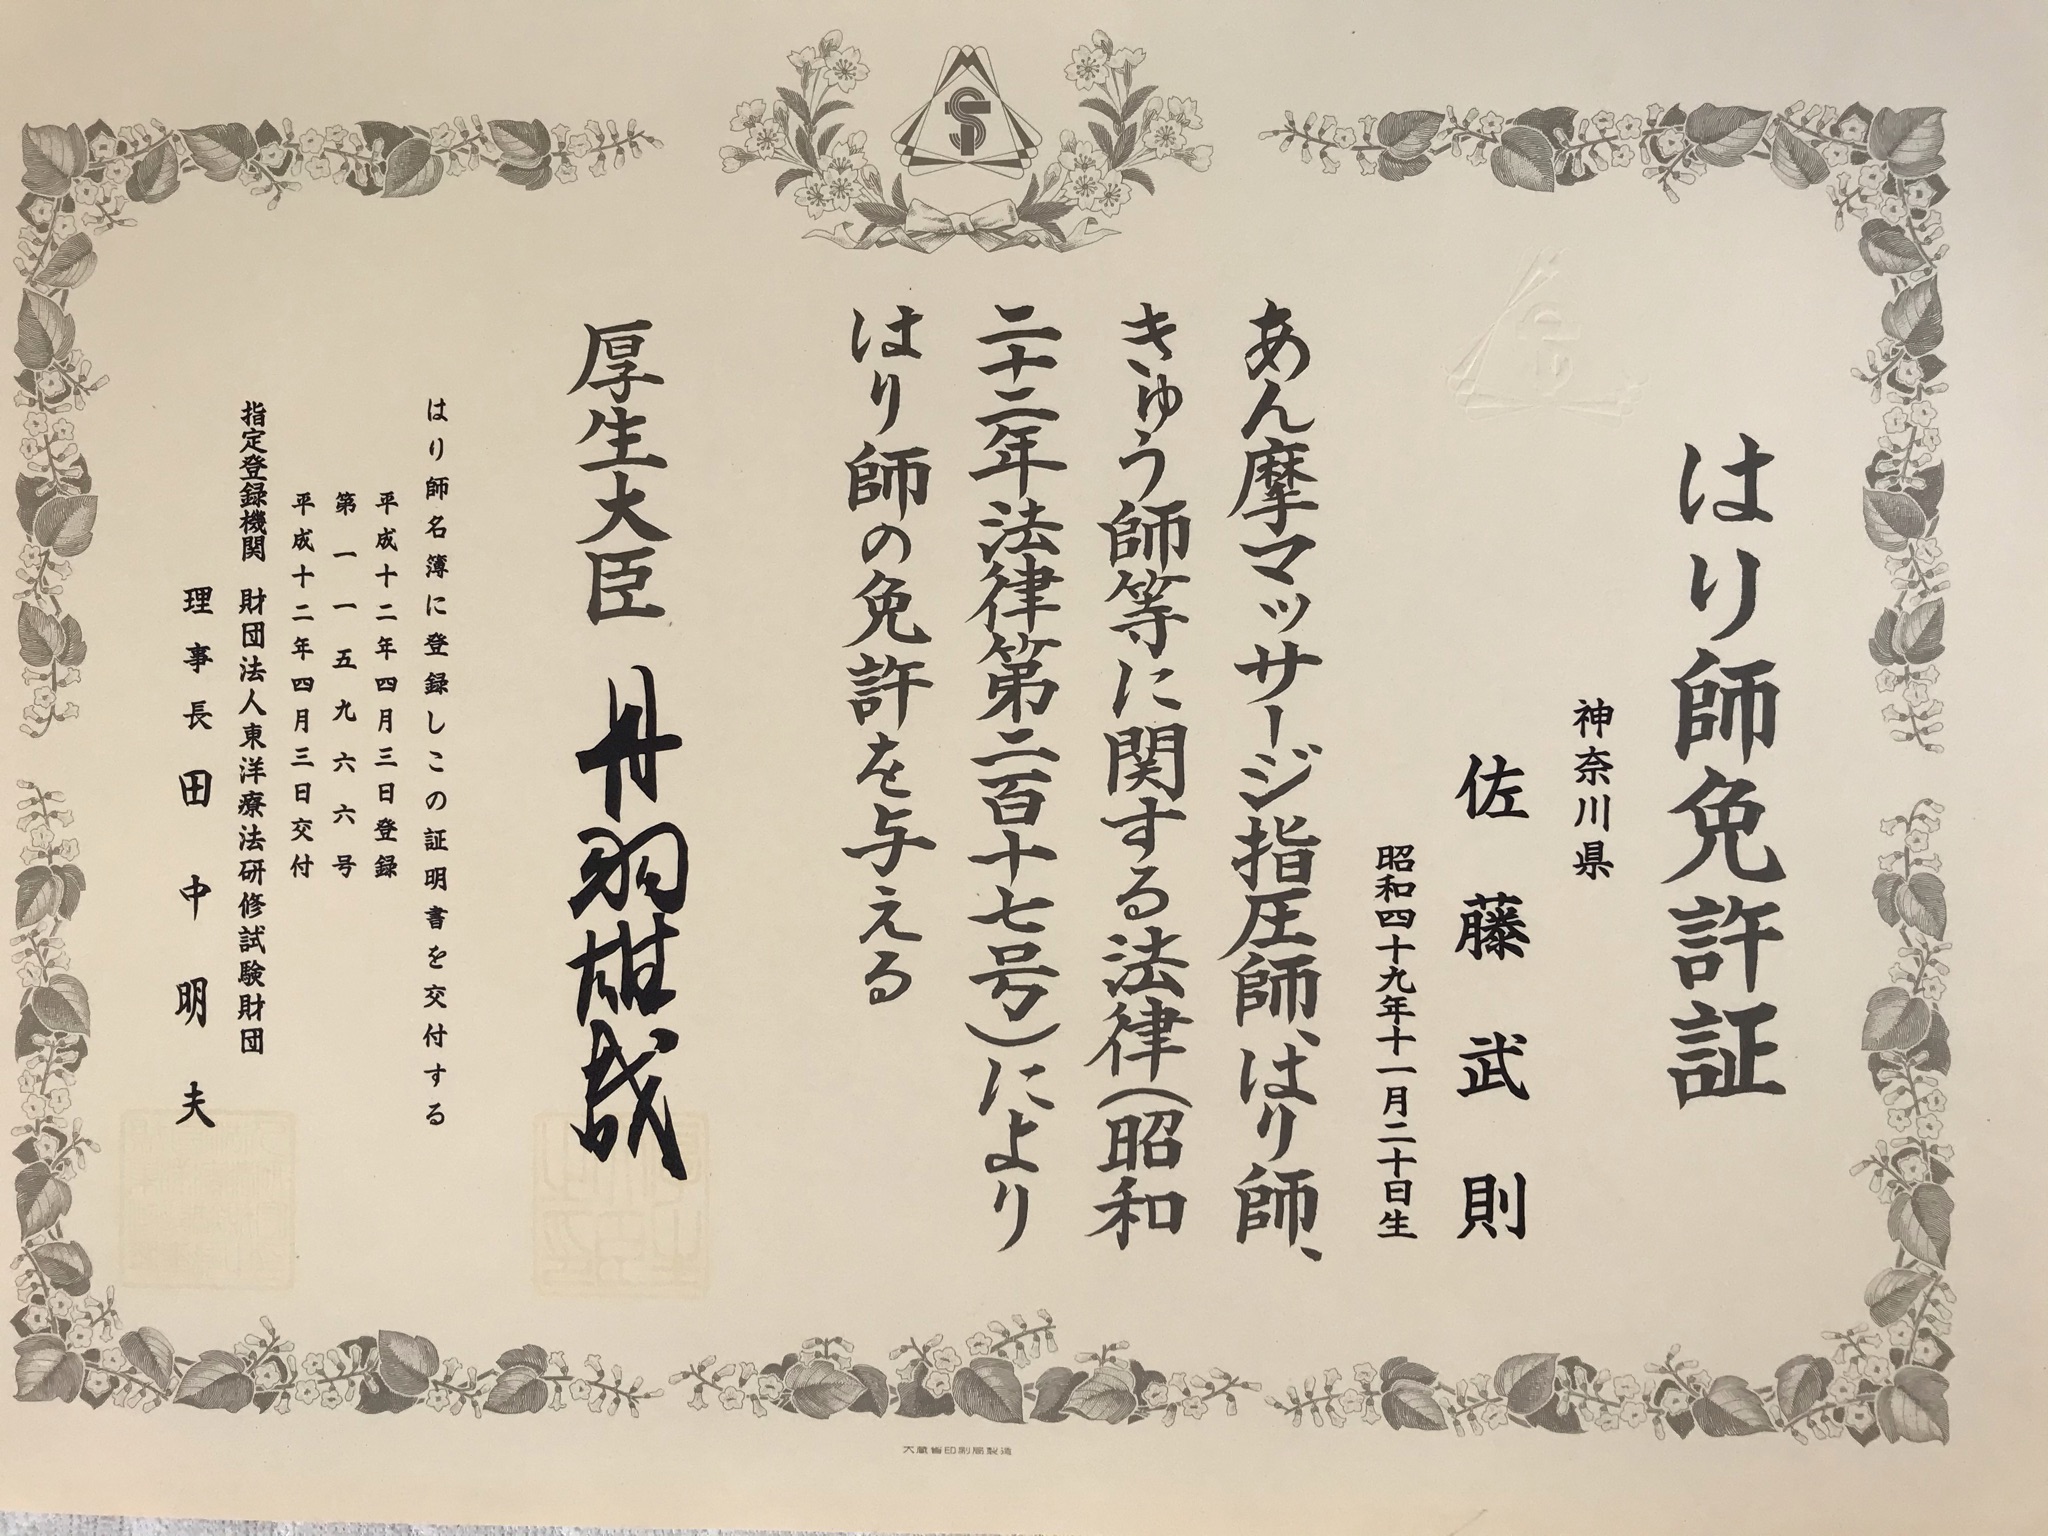 はり師免許証
神奈川県
佐藤武則
昭和四十九年十一月二十日生
あん摩マッサージ指圧師、はり師、
きゅう師等に関する法律(昭和
二十二年法律第二百十七号)により
はり師の免許を与える
厚生大臣 丹羽雄哉
はり師名簿に登録しこの証明書を交付する
平成十二年四月三日登録
第一一五九六六号
平成十二年四月三日交付
指定登録機関 財団法人東洋療法研修試験財団
理事長 田中明夫
大蔵省印刷局製造